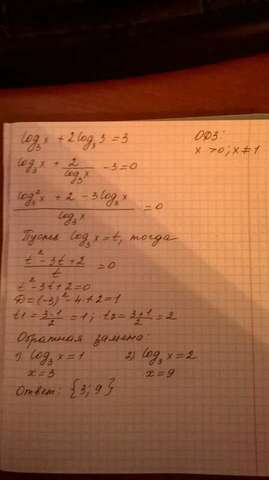 log₃x + 2logₓ3 = 3
ОДЗ:
x > 0; x ≠ 1
log₃x + 2/log₃x - 3 = 0
(log₃²x + 2 - 3log₃x)/log₃x = 0
Пусть log₃x = t, тогда
(t² - 3t + 2)/t = 0
t² - 3t + 2 = 0
D = (-3)² - 4·2 = 1
t1 = (3-1)/2 = 1; t2 = (3+1)/2 = 2
Обратная замена:
1) log₃x = 1 2) log₃x = 2
x = 3 x = 9
Ответ: {3; 9}